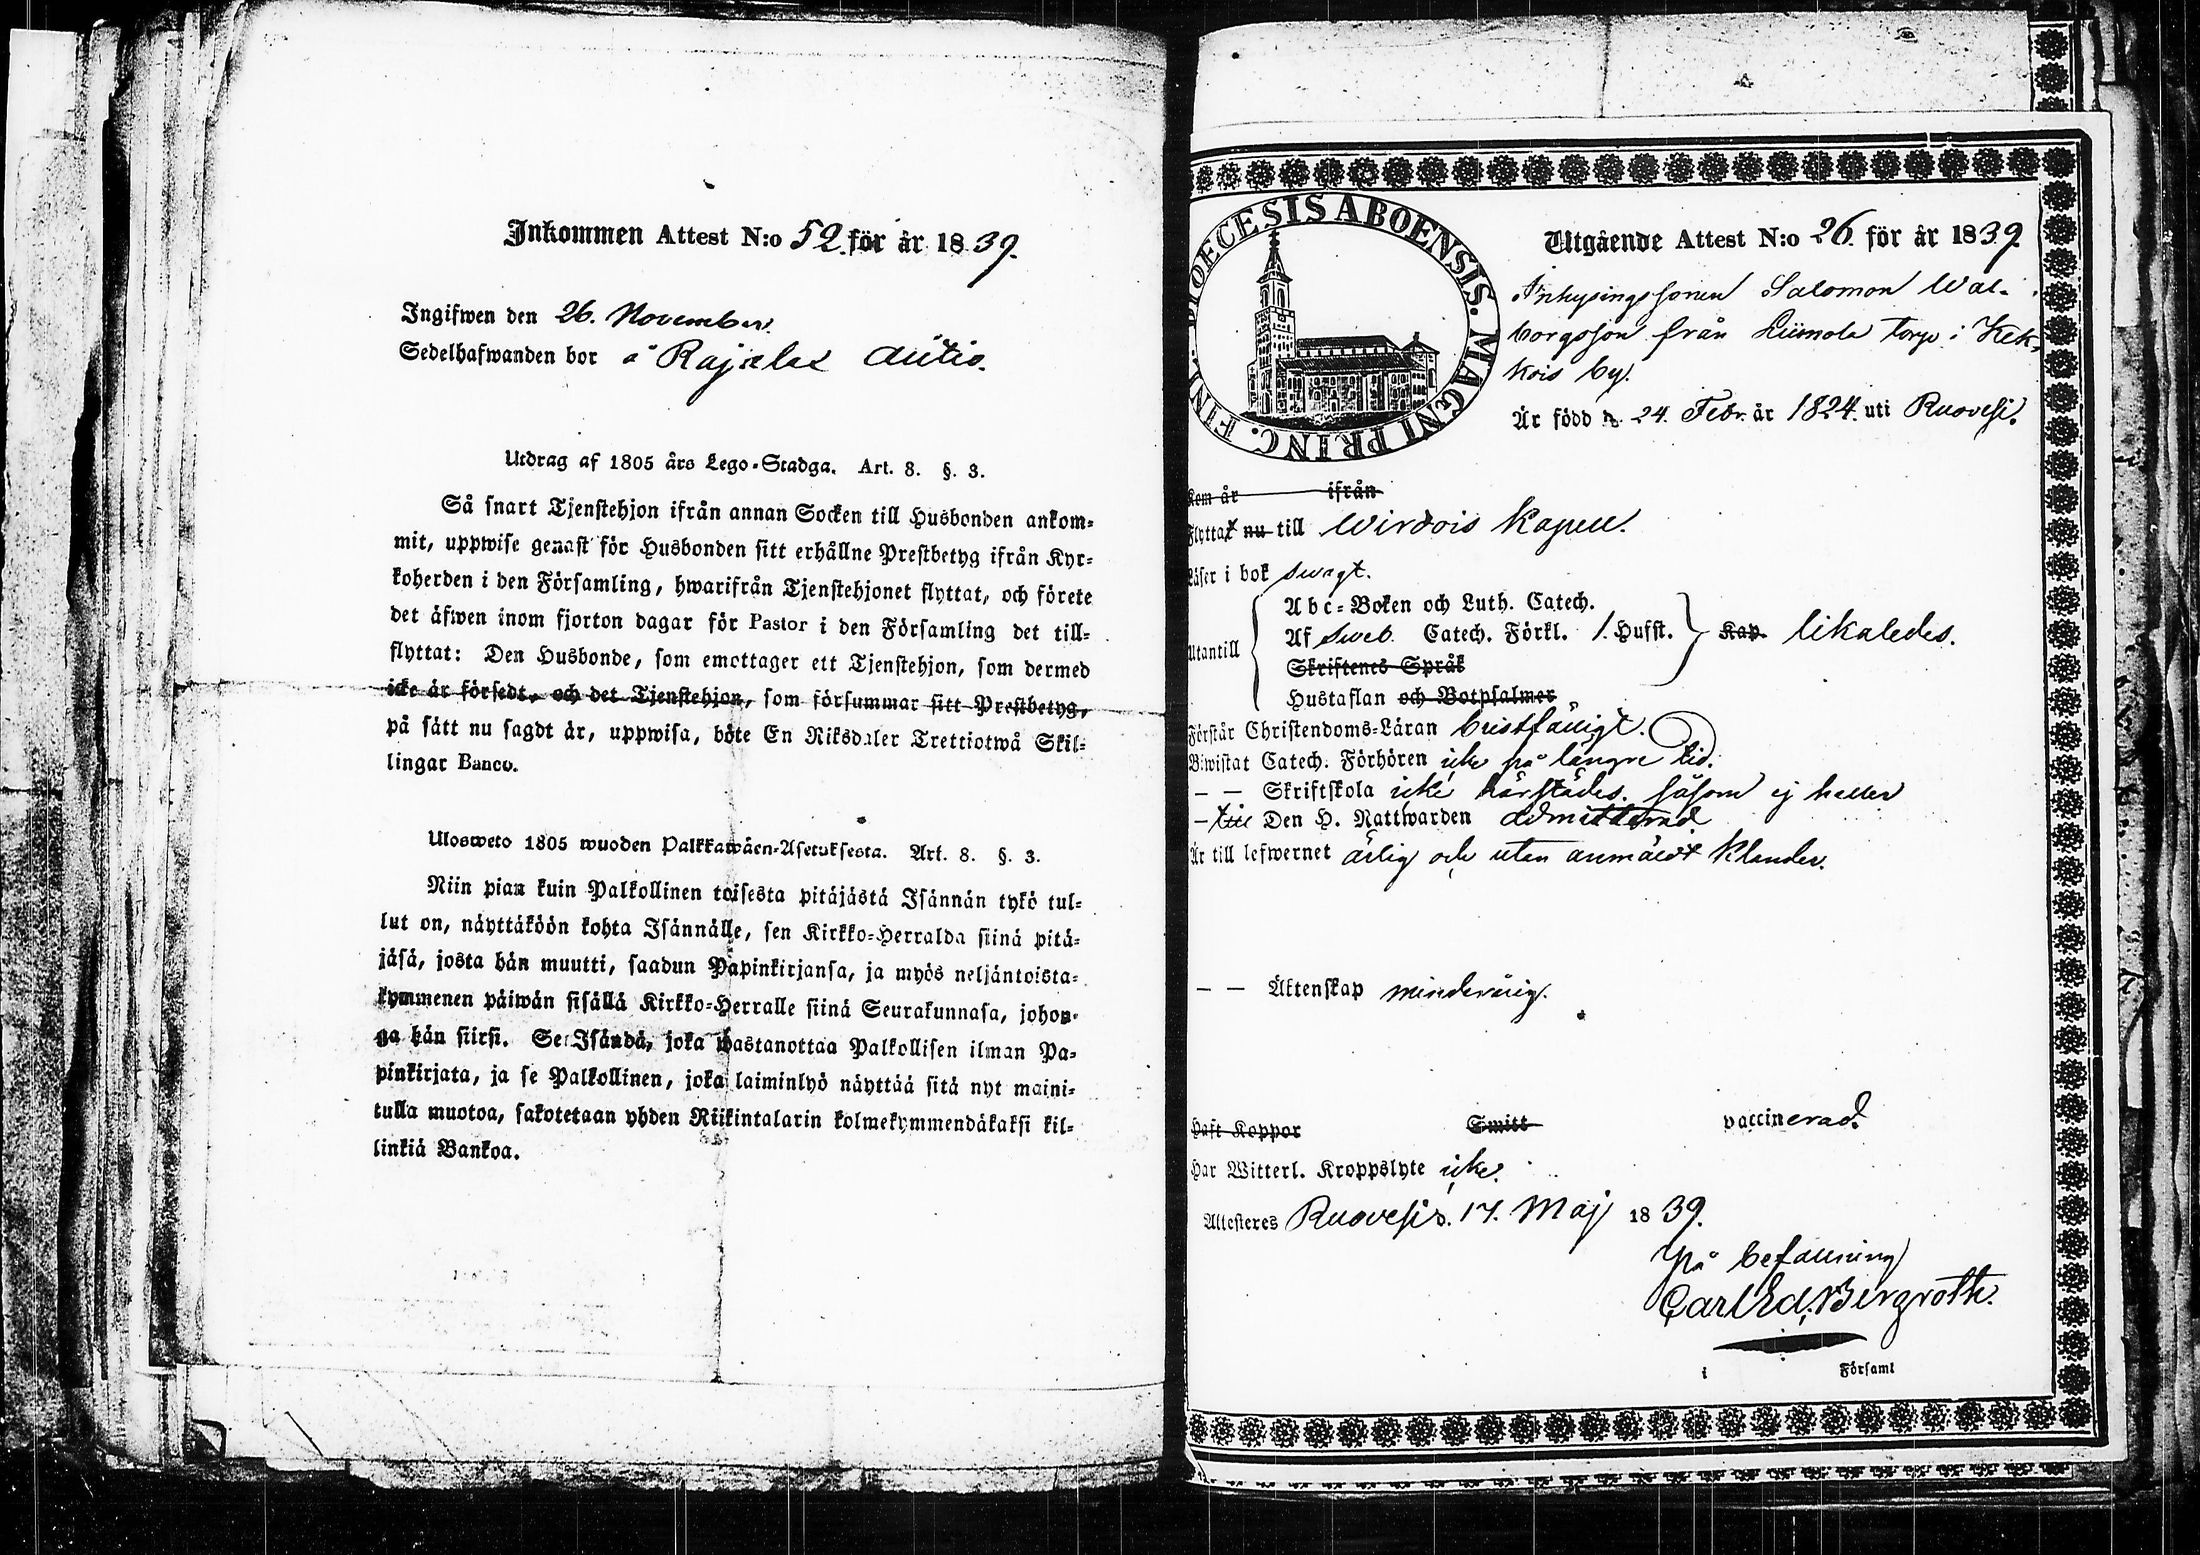 Inkommen Attest N:o 52. för år 1839.
Ingifwen den 26. November.
Sedelhafwanden bor å Rajalax autio.
Utdrag af 1805 års Lego-Stadga. Art. 8. §. 3.
Så snart Tjenstehjon ifrån annan Socken till Husbonden ankom-
mit, uppwise genast för Husbonden sitt erhållne Prestbetyg ifrån Kyr-
koherden i den Församling, hwarifrån Tjenstehjonet flyttat, och förete
det äfwen inom fjorton dagar för Pastor i den Församling det till-
flyttat: Den Husbonde, som emottager ett Tjenstehjon, som dermed
icke är försedt, och det Tjenstehjon, som försummar sitt Prestbetyg,
på sätt nu sagdt är, uppwisa, böte En Riksdaler Trettiotwå Skil-
lingar Banco.
Ulosweto 1805 wuoden Palkkawäen-Asetuksesta. Art. 8. §. 3.
Niin pian kuin Palkollinen toisesta pitäjästä Isännän tykö tul-
lut on, näyttäköön kohta Isännälle, sen Kirkko-Herralda siinä pitä-
jäsä, josta hän muutti, saadun Papinkirjansa, ja myös neljäntoista-
kymmenen päiwän sisällä Kirkko-Herralle siinä Seurakunnasa, johon-
ga hän siirsi. Se Isändä, joka wastanottaa Palkollisen ilman Pa-
pinkirjata, ja se Palkollinen, joka laiminlyö näyttää sitä nyt maini-
tulla muotoa, sakotetaan yhden Riikintalarin kolmekymmendäkaksi kil-
linkiä Bankoa.
DIOECESIS ABOENSIS. MAGNI PRINC. FINL.
Utgående Attest N:o 26. för år 1839.
Inhysingssonen Salomon Wal-
borgsson från Liimola torp i Kek-
kois by.
Är född d. 24. Febr. år 1824. uti Ruovesi.
Kom år ifrån
Flyttat nu till Wirdois Kapell.
Läser i bok swagt.
Abc-Boken och Luth. Catech.
Utantill Af Sweb. Catech. Förkl. 1. Hufst. Kap. likaledes.
Skriftenes Språk
Hustaflan och Botpsalmer
Förstår Christendoms-Läran bristfälligt.
Biwistat Catech. Förhören icke på längre tid.
— — Skriftskola icke härstädes. såsom ej heller
— till Den H. Nattwarden admitterad.
Är till lefwernet ärlig och utan anmäldt klander.
— — Äktenskap minderårig.
Haft Koppor Smitt vaccinerad.
Har Witterl. Kroppslyte icke.
Attesteres Ruovesi d. 17. Maj 1839.
På befallning
Carl Ed. Bergroth.
i Församl